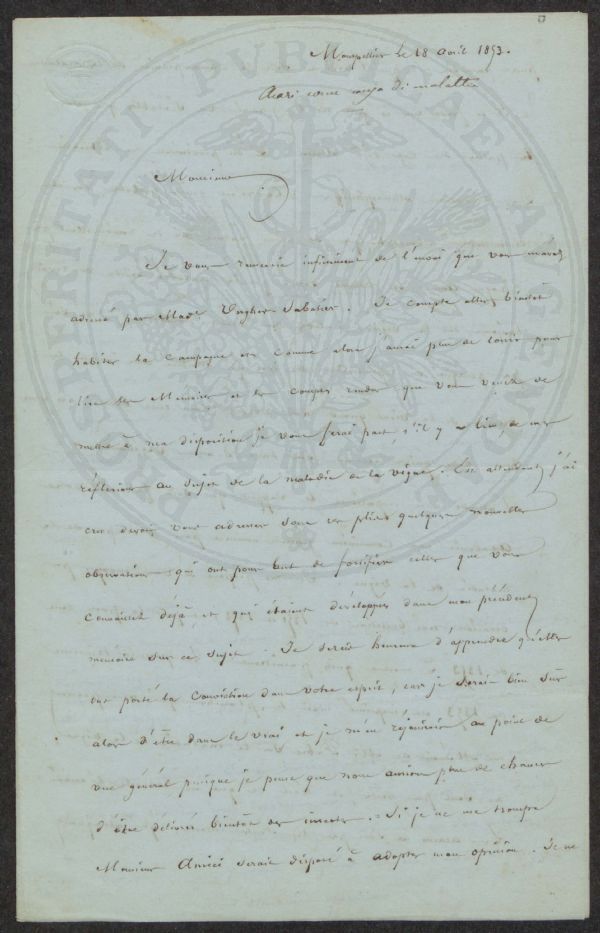 Montpellier le 18 avril 1853.
Acari come causa di malattia
Monsieur
Je vous remercie infiniment de l'envoi que vous m'avez
adressé par Madᵉ Ungher Sabatier. Je compte aller bientôt
habiter la campagne et comme alors j'aurai plus de loisir pour
lire les Memoires et les comptes rendus que vous venez de
mettre à ma disposition je vous ferai part, s'il y a lieu, de mes
réflexions au sujet de la maladie de la vigne. En attendant j'ai
cru devoir vous adresser sous ce plis quelques nouvelles
observations qui ont pour but de fortifier celles que vous
connaissez déjà et qui étaient développées dans mon précédent
memoire sur ce sujet. Je serais heureux d'apprendre qu'elles
ont porté la conviction dans votre esprit, car je serais bien sûr
alors d'être dans le vrai et je m'en réjouirais au point de
vue général puisque je pense que nous aurions plus de chances
d'être délivrés bientôt des insectes. Si je ne me trompe
Monsieur Amici serait disposé à adopter mon opinion. Je ne
PROSPERITATI PUBLICAE AUGENDAE